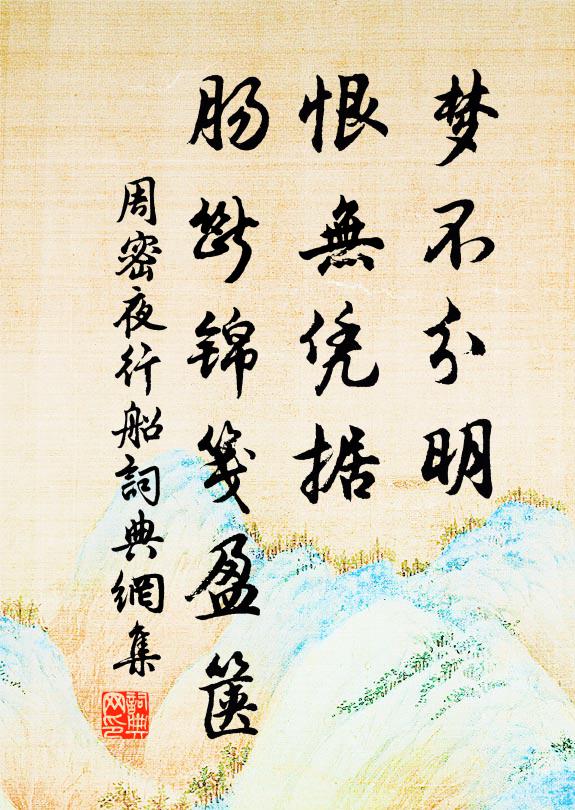 梦不分明
恨無凭据
肠断锦笺盈箧
周密夜行船詞典網集
詞典网印